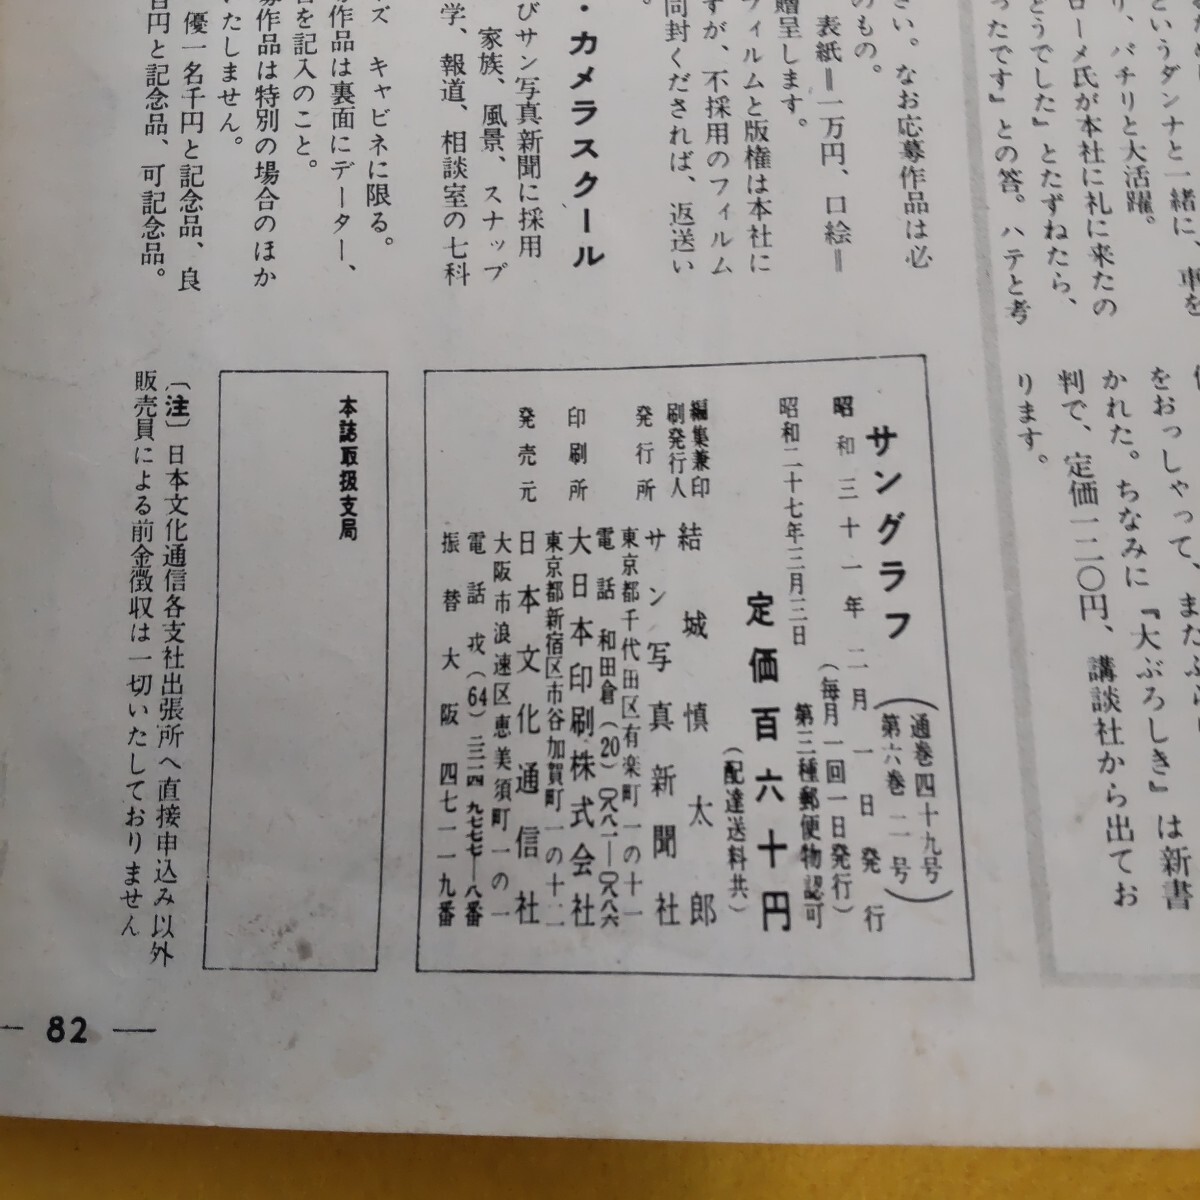 というダンナと一緒に、車を
り、バチリと大活躍。
ローメ氏が本社に礼に来たの
どうでした』とたずねたら、
ったです』との答。ハテと考
さい。なお応募作品は必
のもの。
表紙＝一万円、口絵＝
贈呈します。
フィルムと版権は本社に
すが、不採用のフィルム
同封くだされば、返送い
・カメラスクール
びサン写真新聞に採用
家族、風景、スナップ
学、報道、相談室の七科
ズ　キャビネに限る。
作品は裏面にデーター、
を記入のこと。
募作品は特別の場合のほか
いたしません。
優一名千円と記念品、良
百円と記念品、可記念品。
をおっしゃって、またぶら
かれた。ちなみに『大ぶろしき』は新書
判で、定価一二〇円、講談社から出てお
ります。
サングラフ（通巻四十九号 第六巻二号）
昭和三十一年二月一日発行
（毎月一回一日発行）
昭和二十七年三月三日　第三種郵便物認可
定価百六十円
（配達送料共）
編集兼印刷発行人　結城慎太郎
発行所　サン写真新聞社
東京都千代田区有楽町一の十一
電話　和田倉（20）〇八八一―〇八八六
印刷所　大日本印刷株式会社
東京都新宿区市谷加賀町一の十二
発売元　日本文化通信社
大阪市浪速区恵美須町一の一
電話　戎（64）三二四　九七七七―八番
振替大阪　四七一一九番
本誌取扱支局
〔注〕日本文化通信各支社出張所へ直接申込み以外
販売員による前金徴収は一切いたしておりません
— 82 —